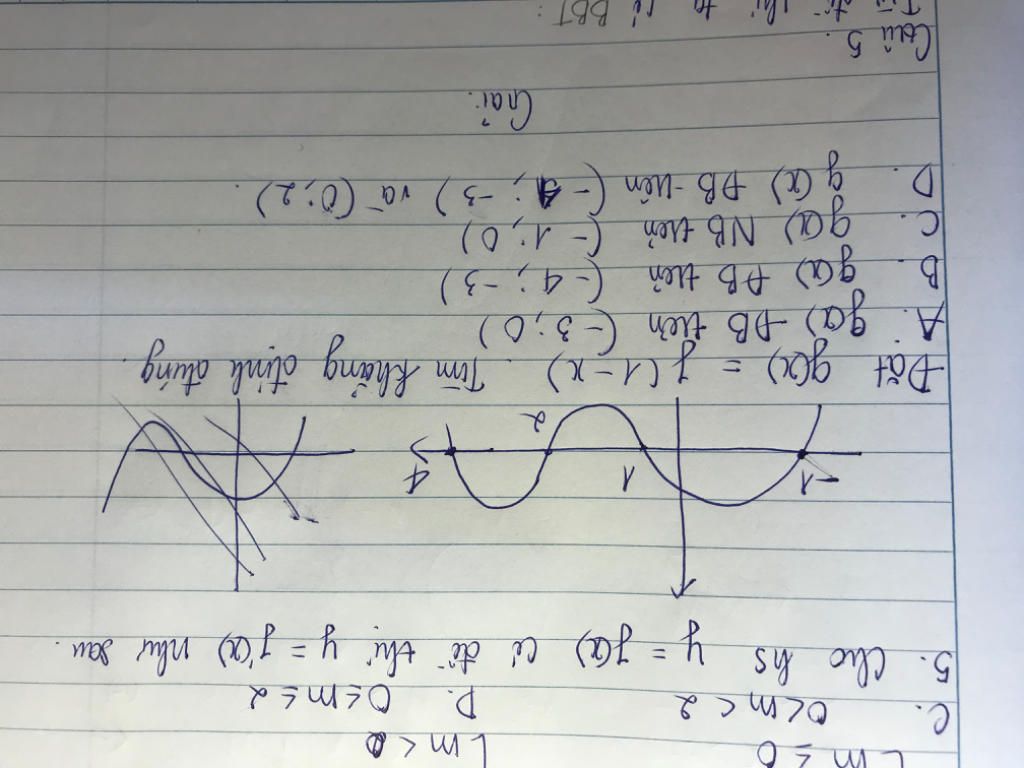 [ m ≤ 0 [ m < 0
C. 0 < m < 2 D. 0 ≤ m ≤ 2
5. Cho hs y = f(x) có đồ thị y = f'(x) như sau.
-1 1 2 4
Đặt g(x) = f(1-x). Tìm khẳng định đúng.
A. g(x) ĐB trên (-3; 0)
B. g(x) ĐB trên (-4; -3)
C. g(x) NB trên (-1; 0)
D. g(x) ĐB trên (-1; -3) và (0; 2).
Giải:
Câu 5.
Từ đồ thị ta có BBT: